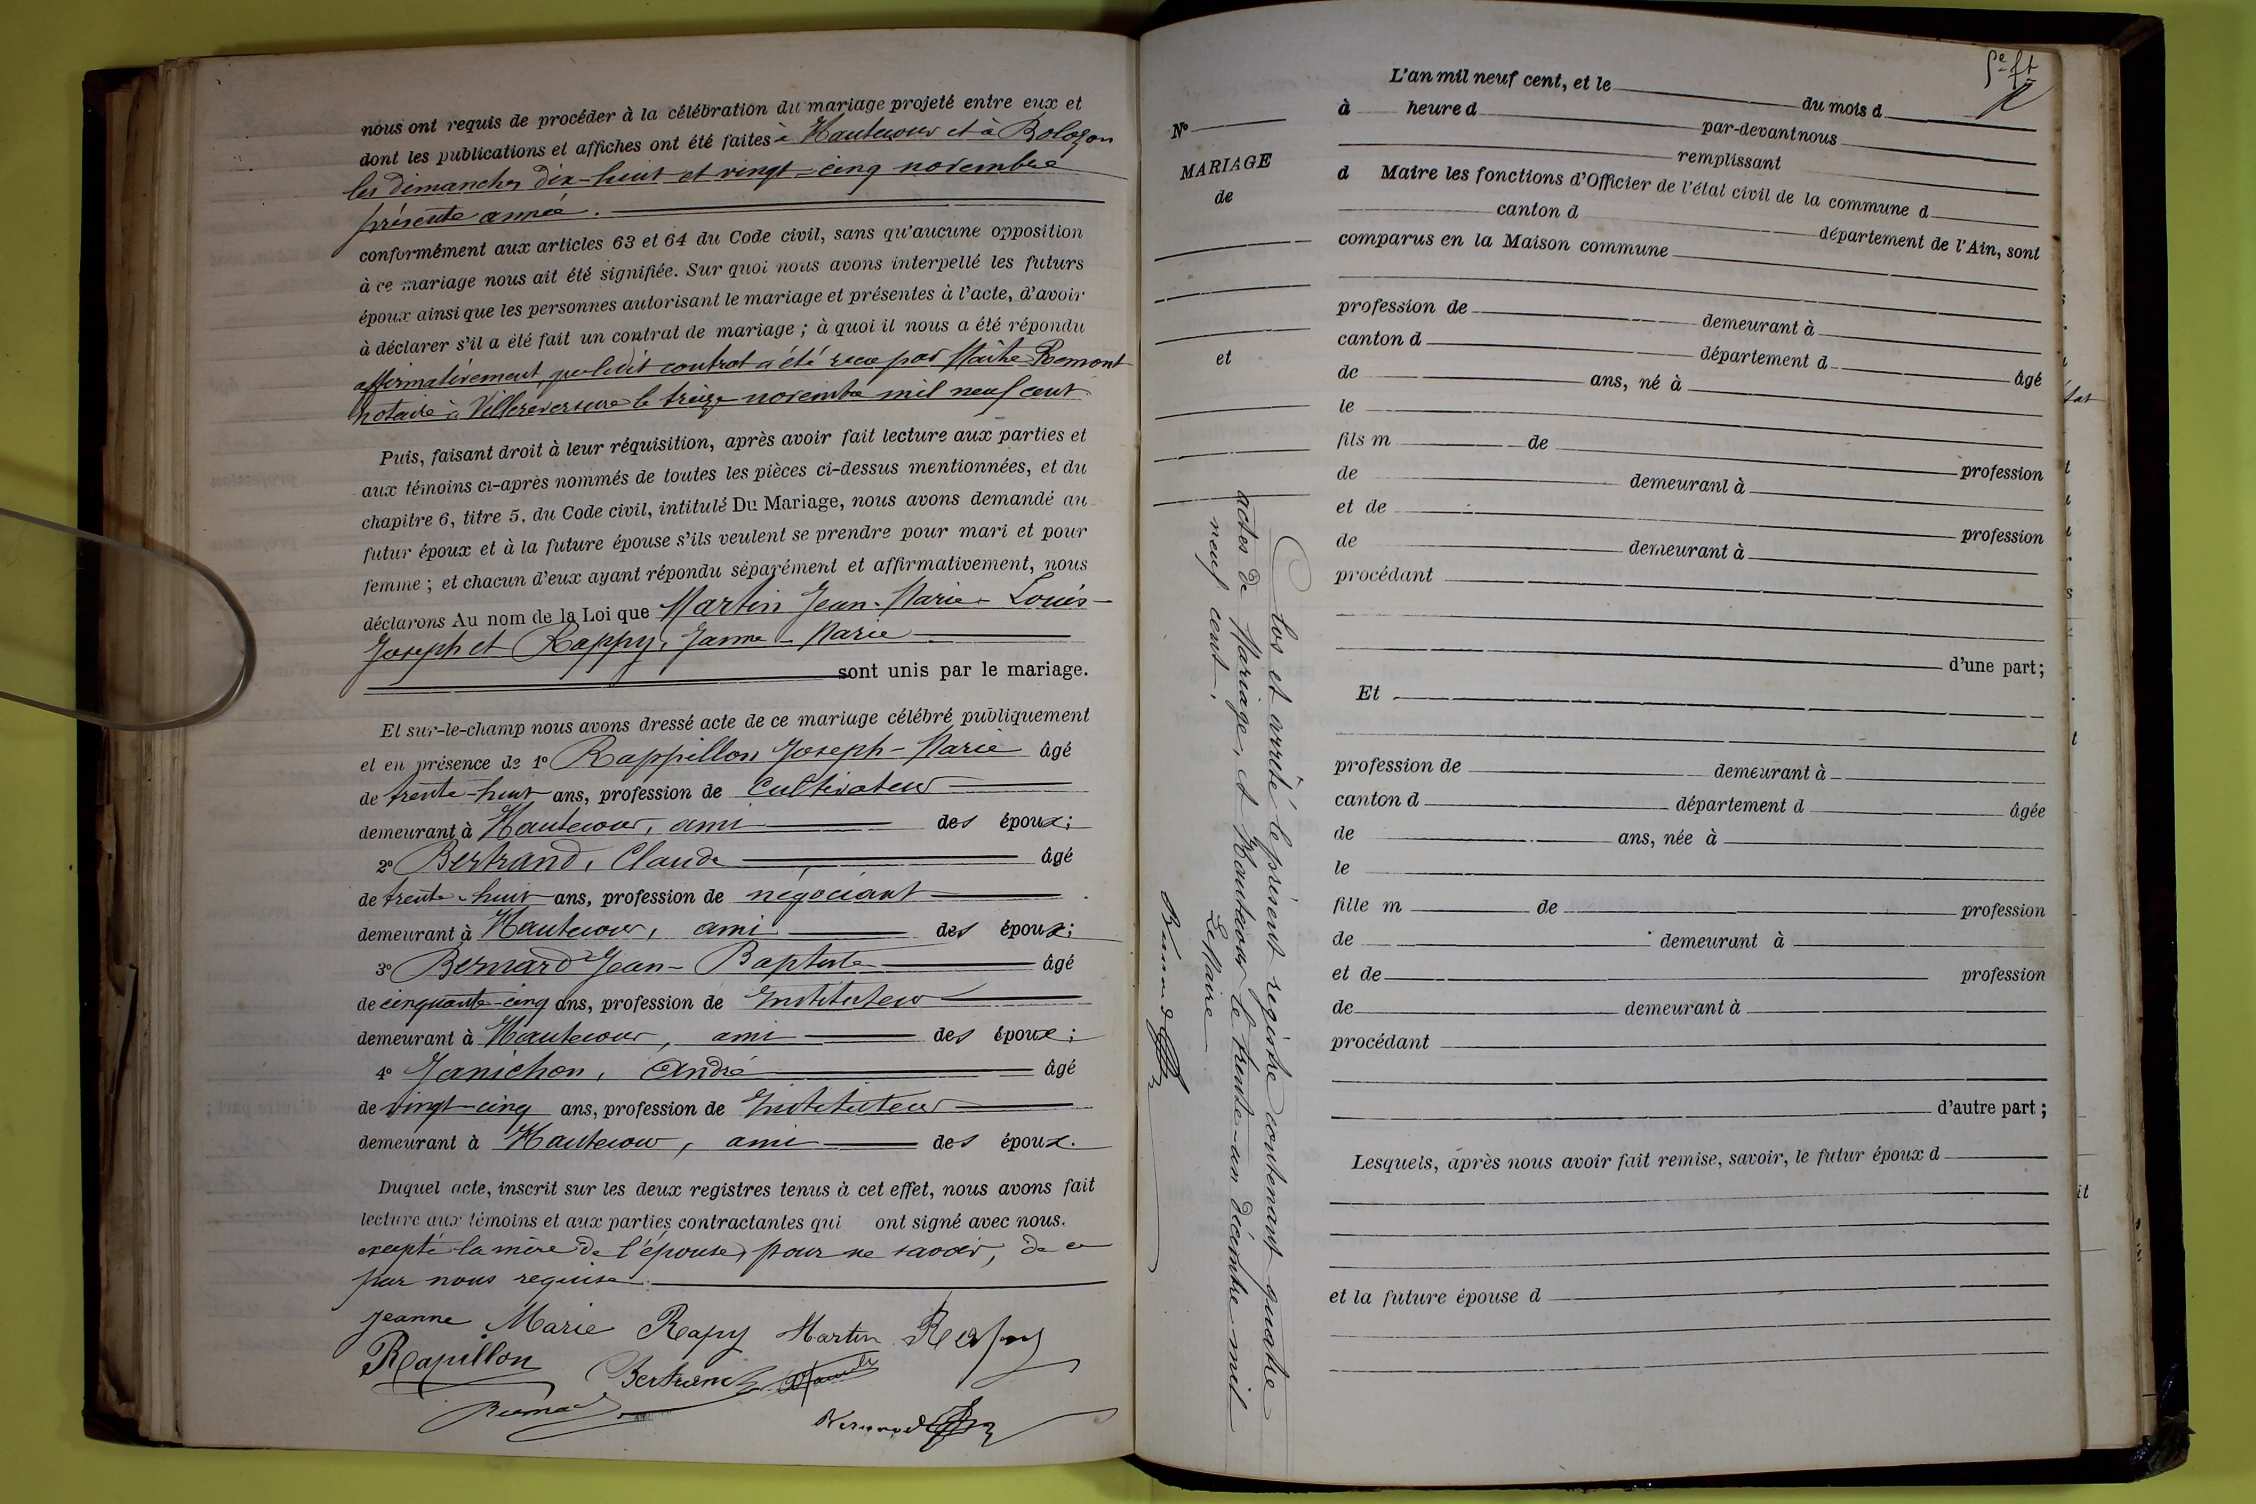 nous ont requis de procéder à la célébration du mariage projeté entre eux et
dont les publications et affiches ont été faites à Hautecour et à Bolozon
les dimanches dix-huit et vingt-cinq novembre
présente année.
conformément aux articles 63 et 64 du Code civil, sans qu'aucune opposition
à ce mariage nous ait été signifiée. Sur quoi nous avons interpellé les futurs
époux ainsi que les personnes autorisant le mariage et présentes à l'acte, d'avoir
à déclarer s'il a été fait un contrat de mariage ; à quoi il nous a été répondu
affirmativement, que ledit contrat a été reçu par Maître Remont
notaire à Villereversure le treize novembre mil neuf cent
Puis, faisant droit à leur réquisition, après avoir fait lecture aux parties et
aux témoins ci-après nommés de toutes les pièces ci-dessus mentionnées, et du
chapitre 6, titre 5, du Code civil, intitulé Du Mariage, nous avons demandé au
futur époux et à la future épouse s'ils veulent se prendre pour mari et pour
femme ; et chacun d'eux ayant répondu séparément et affirmativement, nous
déclarons Au nom de la Loi que Martin Jean-Marie-Louis-
Joseph et Rappy, Janne-Marie
sont unis par le mariage.
Et sur-le-champ nous avons dressé acte de ce mariage célébré publiquement
et en présence de 1° Rappillon Joseph-Marie âgé
de trente-huit ans, profession de Cultivateur
demeurant à Hautecour, ami des époux;
2° Bertrand, Claude âgé
de trente-huit ans, profession de négociant
demeurant à Hautecour, ami des époux;
3° Bernard Jean-Baptiste âgé
de cinquante-cinq ans, profession de Instituteur
demeurant à Hautecour, ami des époux;
4° Janichon, André âgé
de vingt-cinq ans, profession de Instituteur
demeurant à Hautecour, ami des époux.
Duquel acte, inscrit sur les deux registres tenus à cet effet, nous avons fait
lecture aux témoins et aux parties contractantes qui ont signé avec nous.
excepté la mère de l'épouse, pour ne savoir, de ce
par nous requise.
Jeanne Marie Rapy Martin
Rapillon Bertrand
L'an mil neuf cent, et le du mois d
à heure d par-devant nous
remplissant
d Maire les fonctions d'Officier de l'état civil de la commune d
canton d département de l'Ain, sont
comparus en la Maison commune
profession de demeurant à
canton d département d âgé
de ans, né à
le
fils m de profession
de demeurant à
et de profession
de demeurant à
procédant
d'une part;
Et
profession de demeurant à
canton d département d âgée
de ans, née à
le
fille m de profession
de demeurant à
et de profession
de demeurant à
procédant
d'autre part;
Lesquels, après nous avoir fait remise, savoir, le futur époux d
et la future épouse d
N°
MARIAGE
de
et
Clos et arrêté le présent registre contenant quatre
actes de Mariage, à Hautecour le trente-un décembre mil
neuf cent.
Le Maire